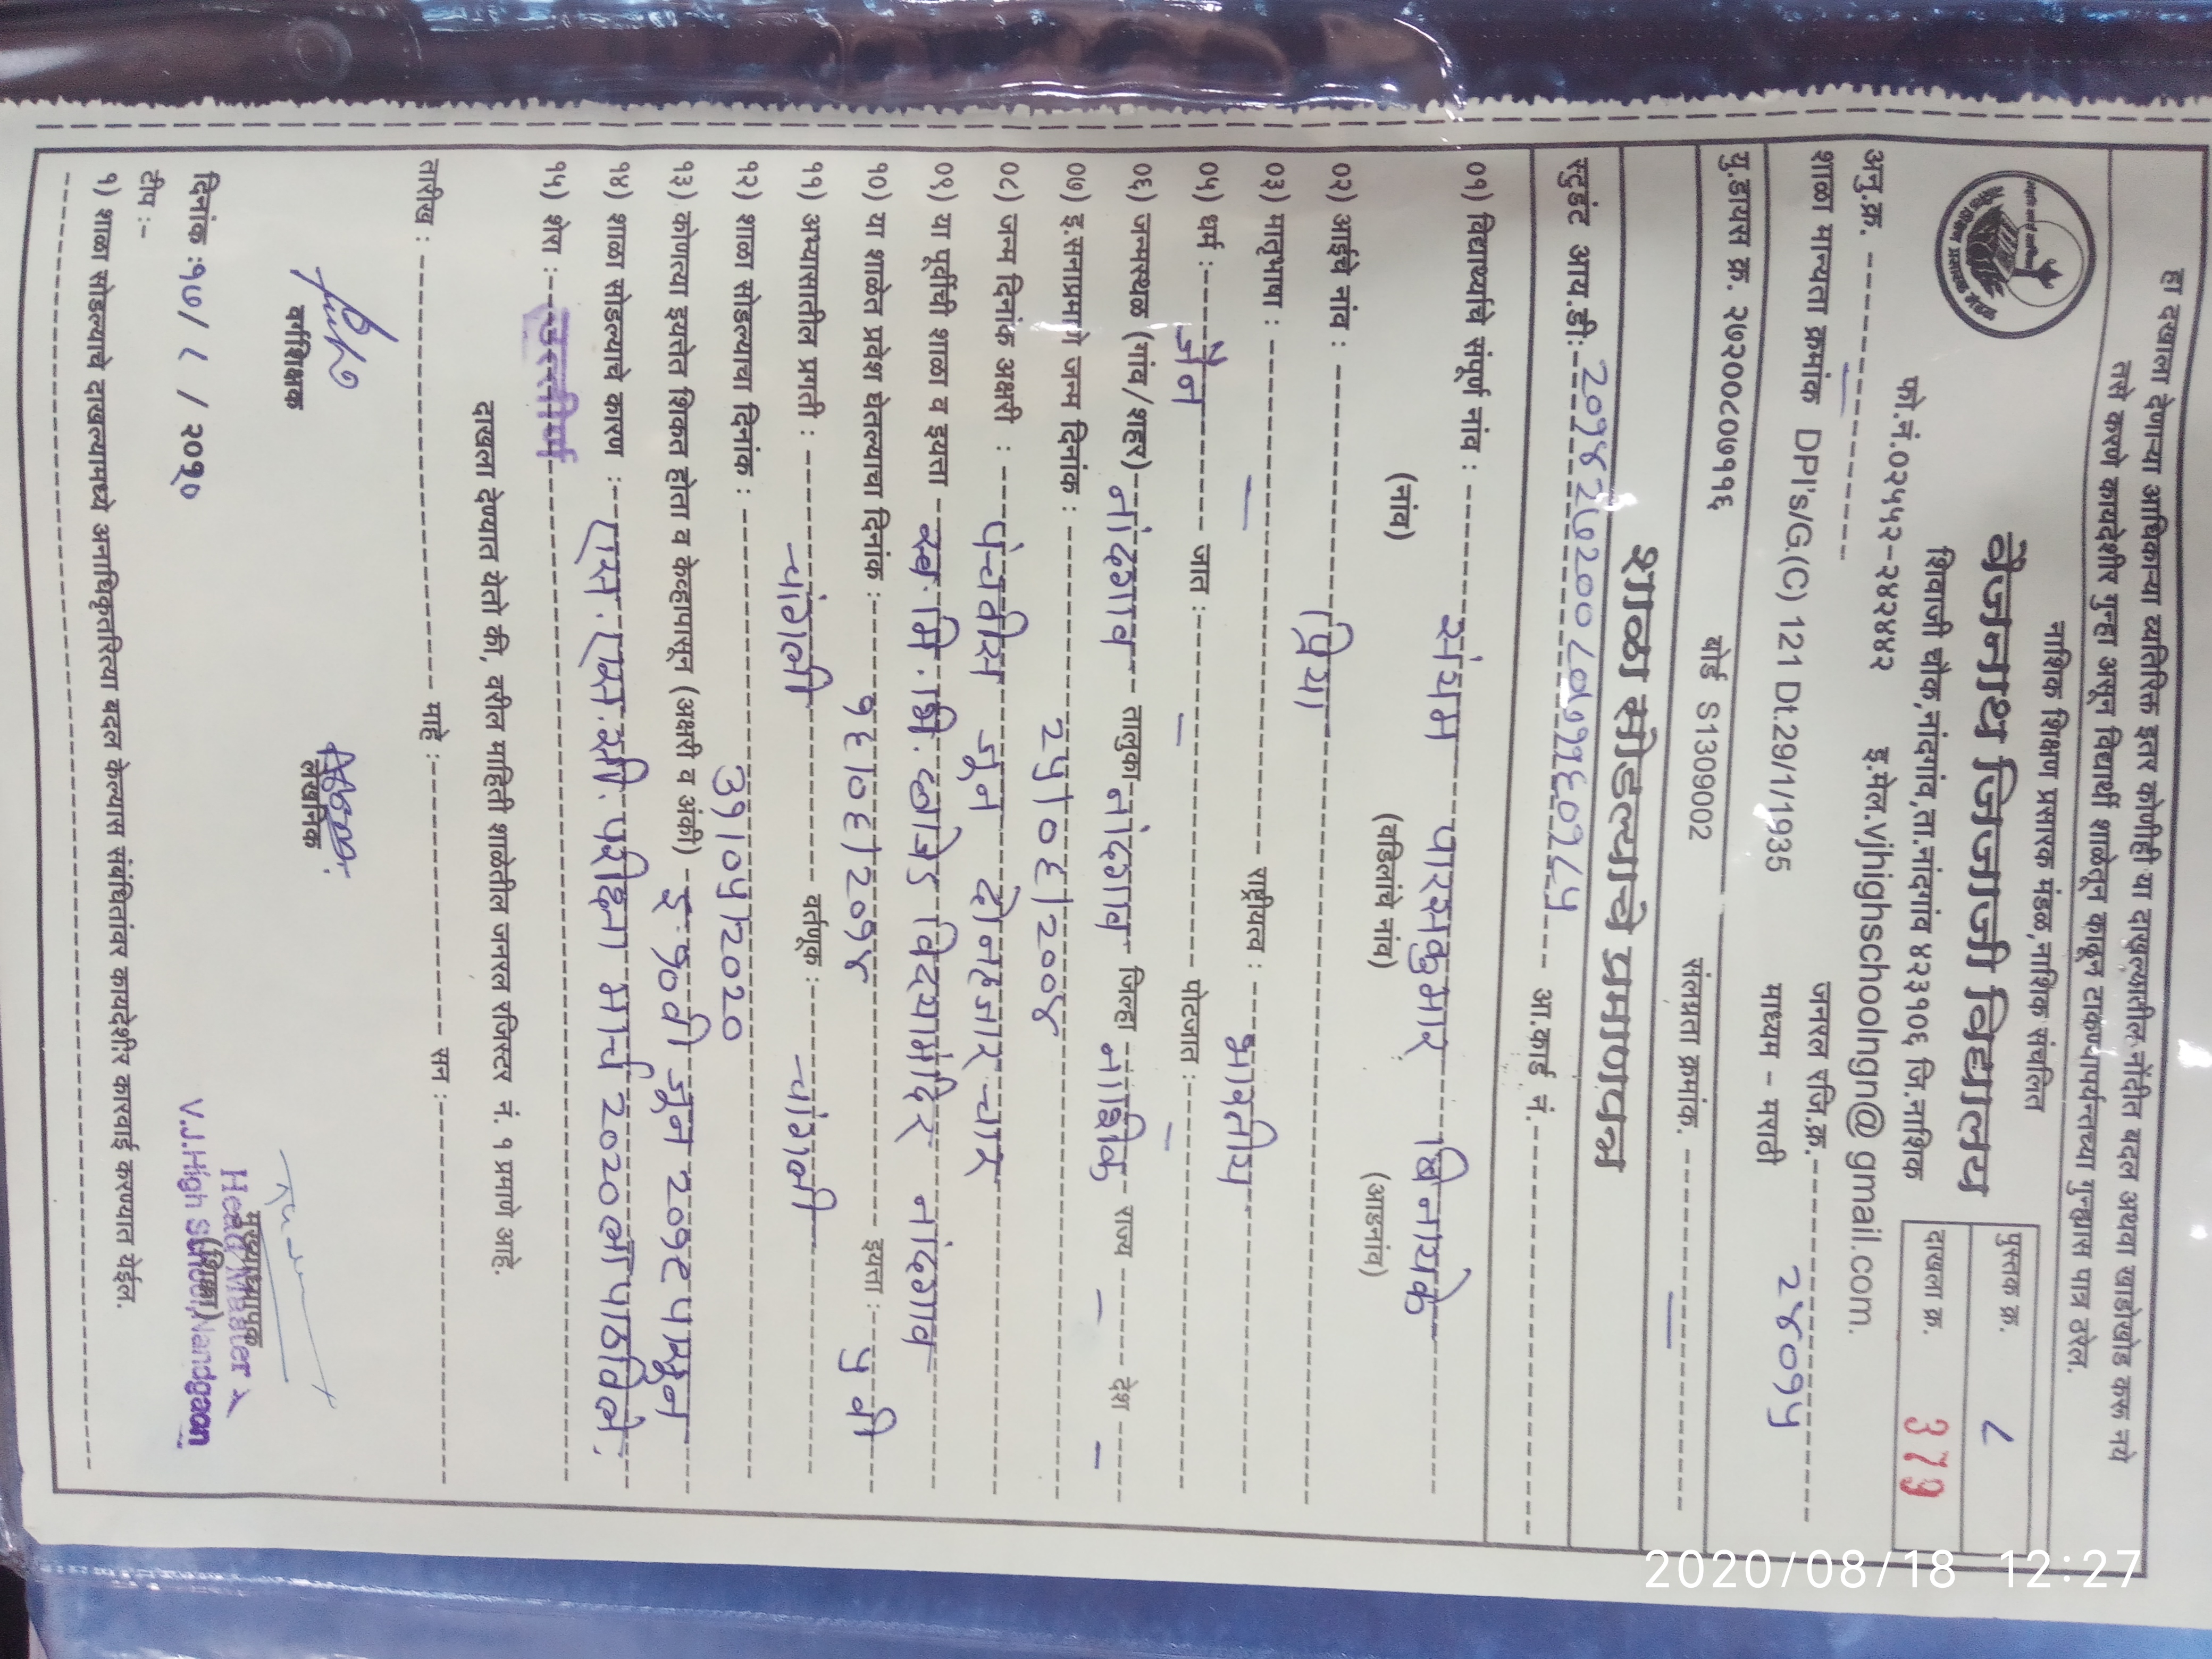 हा दाखला देणाऱ्या अधिकाऱ्या व्यतिरिक्त इतर कोणीही या दाखल्यातील नोंदीत बदल अथवा खाडाखोड करू नये
तसे करणे कायदेशीर गुन्हा असून विद्यार्थी शाळेतून काढून टाकण्यापर्यन्तच्या गुन्ह्यास पात्र ठरेल.
नाशिक शिक्षण प्रसारक मंडळ,नाशिक संचलित
वैजनाथ जिजाजी विद्यालय
शिवाजी चौक,नांदगांव,ता.नांदगांव ४२३१०६ जि.नाशिक
पुस्तक क्र. ८
दाखला क्र. 379
फो.नं.०२५५२-२४२४४२ इ.मेल.vjhighschoolngn@ gmail.com.
अनु.क्र. -
शाळा मान्यता क्रमांक DPI's/G.(C) 121 Dt.29/1/1935 माध्यम - मराठी
जनरल रजि.क्र. २४०१५
यु.डायस क्र. २७२००८०७११६ बोर्ड S1309002 संलग्नता क्रमांक. -
शाळा सोडल्याचे प्रमाणपत्र
स्टुडंट आय.डी: आ.कार्ड नं.
०१) विद्यार्थ्याचे संपूर्ण नांव : संयम पारसकुमार खिनायके
(नांव) (वडिलांचे नांव) (आडनांव)
०२) आईचे नांव : प्रिया
०३) मातृभाषा : - राष्ट्रीयत्व : भारतीय
०५) धर्म : जैन जात : - पोटजात : -
०६) जन्मस्थळ (गांव/शहर) नांदगाव तालुका नांदगाव जिल्हा नाशिक राज्य - देश -
०७) इ.सनाप्रमाणे जन्म दिनांक : २५/०६/२००४
०८) जन्म दिनांक अक्षरी : पंचवीस जून दोनहजार चार
०९) या पूर्वीची शाळा व इयत्ता विद्यामंदिर नांदगाव
१०) या शाळेत प्रवेश घेतल्याचा दिनांक : १६/०६/२०१४ इयत्ता : ५ वी
११) अभ्यासातील प्रगती : चांगली वर्तणूक : चांगली
१२) शाळा सोडल्याचा दिनांक : ३१/०५/२०२०
१३) कोणत्या इयत्तेत शिकत होता व केव्हापासून (अक्षरी व अंकी) इ १० वी जून २०१९ पासून
१४) शाळा सोडल्याचे कारण : एस.एस.सी. परीक्षा मार्च २०२० ला पाठविले.
१५) शेरा : उत्तीर्ण
दाखला देण्यात येतो की, वरील माहिती शाळेतील जनरल रजिस्टर नं. १ प्रमाणे आहे.
तारीख : माहे : सन :
वर्गशिक्षक लेखनिक मुख्याध्यापक
(शिक्का)
Head Master
V.J.High School,Nandgaon
दिनांक :१७/ ८ / २०२०
टीप :-
१) शाळा सोडल्याचे दाखल्यामध्ये अनाधिकृतरित्या बदल केल्यास संबंधितांवर कायदेशीर कारवाई करण्यात येईल.
2020/08/18 12:27